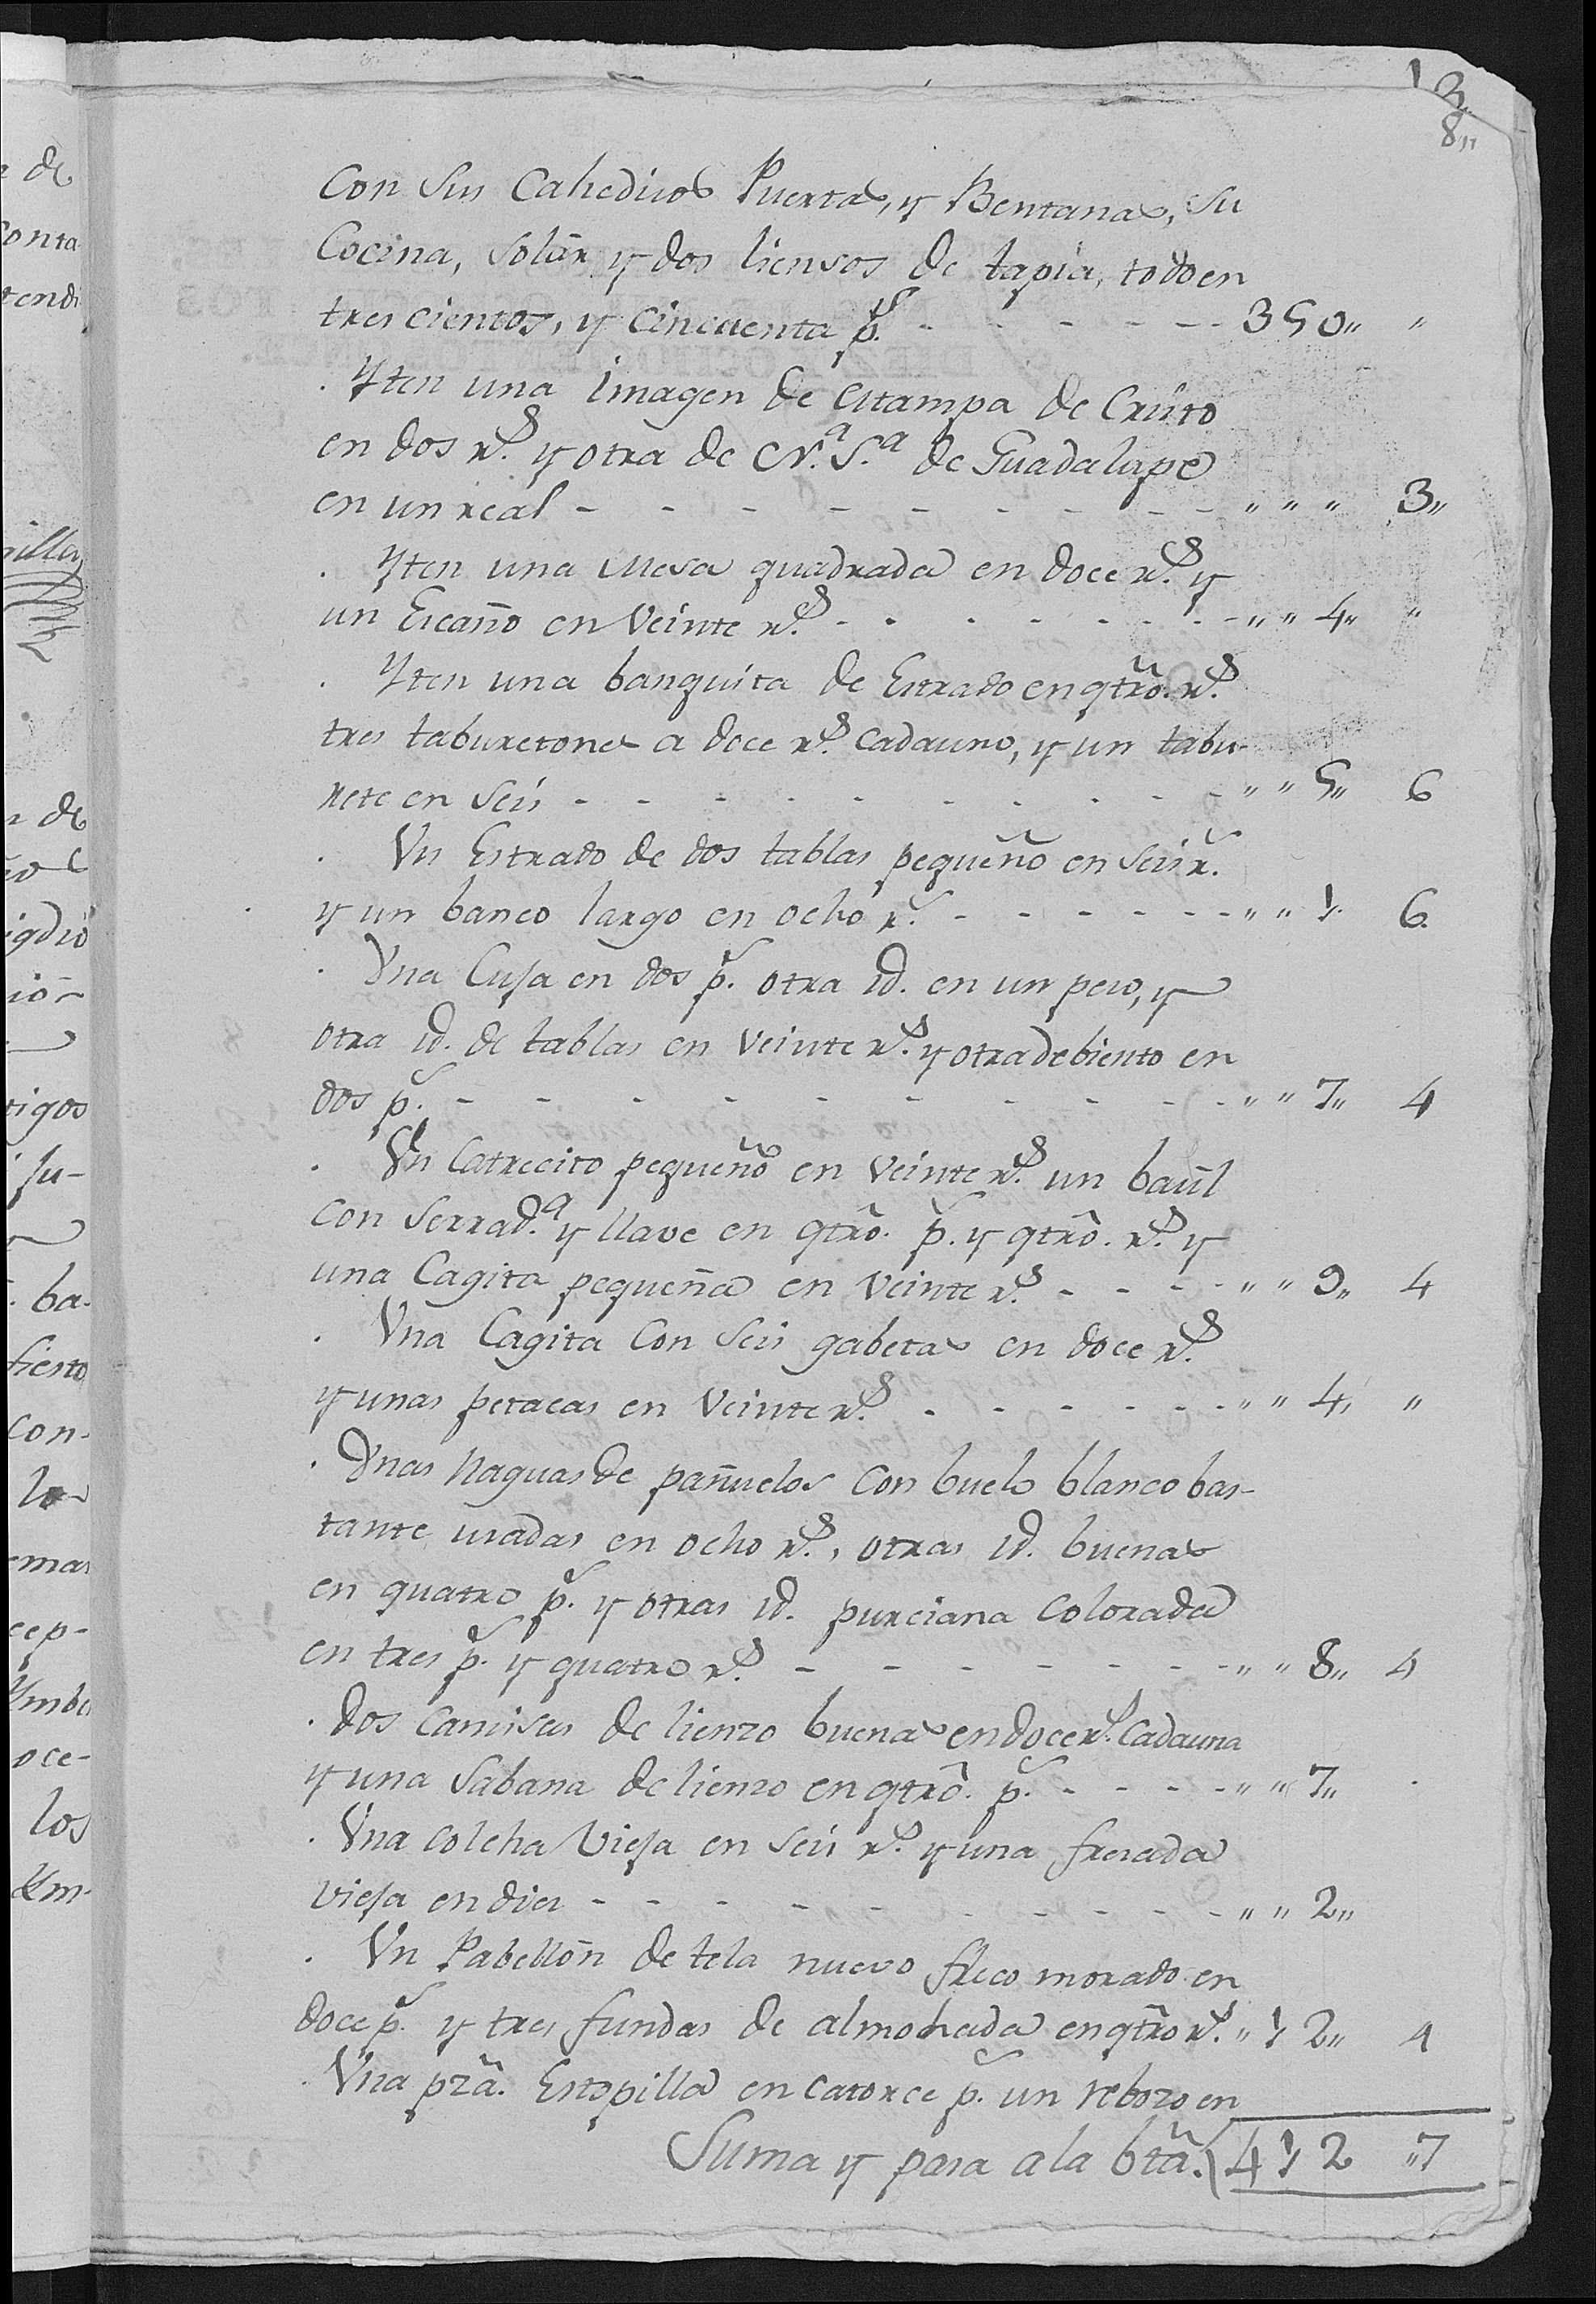 13
8"
Con Sus Cahedisos Puertas, y Bentanas, su
Cocina, solár y dos liensos de tapia, todo en
tres cientos, y cincuenta p.s - - - - - - 350,, "
. Yten una imagen de estampa de Cristo
en dos r.s y otra de N.a S.a de Guadalupe
en un real - - - - - - - - - " " " 3,,
. Yten una Mesa quadrada en doce r.s y
un Escaño en Veinte r.s - - - - - - - " " 4,, "
. Yten una banquita de Estrado en qtrõ. r.s
tres taburetones a doce r.s cadauno, y un tabu-
rete en seis - - - - - - - - - " " 5,, 6
. Un Estrado de dos tablas pequeño en seis r.s
y un banco largo en ocho r.s - - - - - - " " 1. 6.
. Una Cuja en dos p.s otra id. en un peso, y
otra id. de tablas en veinte r.s y otra de biento en
dos p.s - - - - - - - - - - " " 7,, 4
. Un Catrecito pequeño en veinte r.s un baúl
con serrad.a y llave en qtrõ. p.s y qtrõ. r.s y
una Cagita pequeña en veinte r.s - - - - " " 9,, 4
. Una Cagita con seis gabetas en doce r.s
y unas petacas en Veinte r.s - - - - - - " " 4,, "
. Unas Naguas de pañuelos con buelo blanco bas-
tante usadas en ocho r.s, otras id. buenas
en quatro p.s y otras id. purciana colorada
en tres p.s y quatro r.s - - - - - - - " " 8,, 4
. Dos camisas de lienzo buenas en doce r.s cadauna
y una Sabana de lienzo en qtrõ. p.s - - - - " " 7,, .
. Una colcha Vieja en seis r.s y una fresada
vieja en dies - - - - - - - - - " " 2,,
. Un Pabellón de tela nuevo fleco morado en
doce p.s y tres fundas de almohada en qtrõ r.s " 12,, 4
. Una pzã. Estopilla en catorce p.s un rebozo en
Suma y pasa a la btã. 412 "7
de
Conta
tendi
de
igdio
ió-
tigos
su-
ba-
fiesto
con-
lo
emas
cep-
Ymbe
oce-
los
Ym-